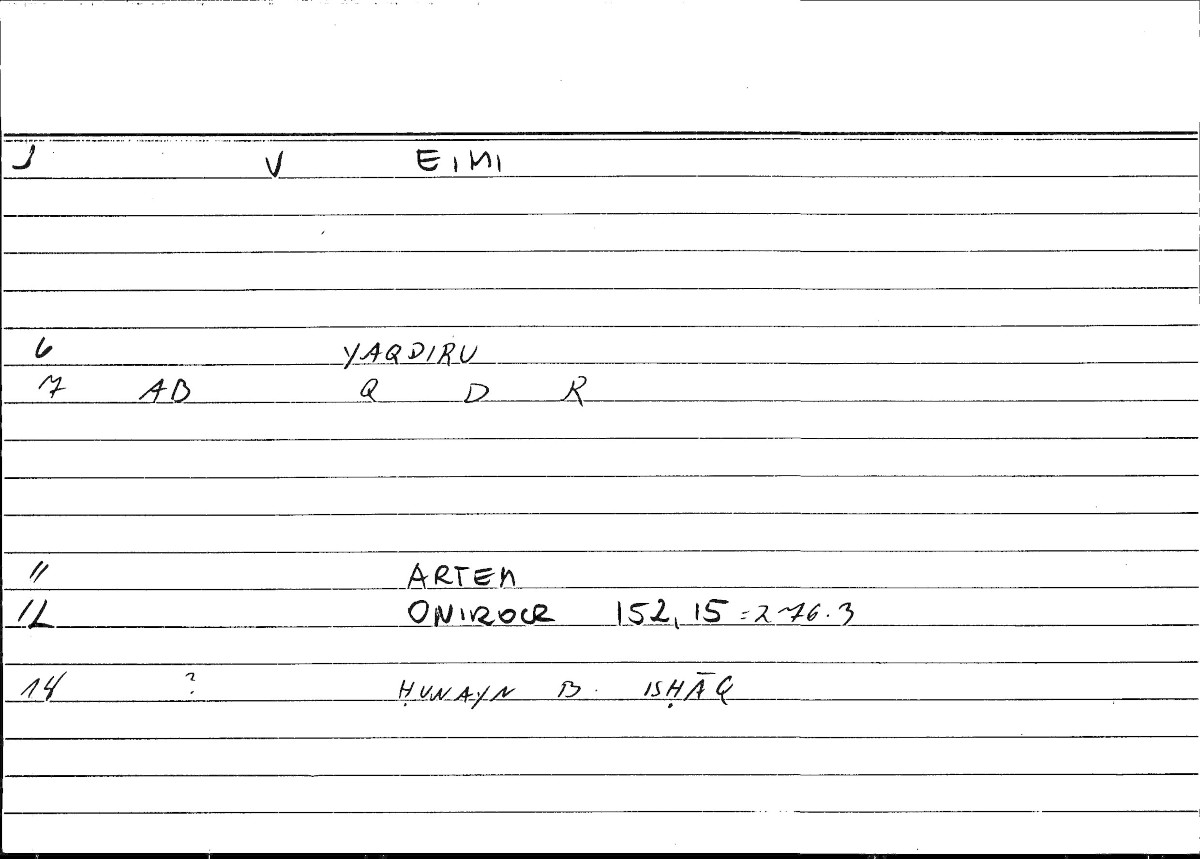 J V EIMI
6 YAQDIRU
7 AB Q D R
11 ARTEM
12 ONIROCR 152,15 = 276.3
14 ? ḤUNAYN B. ISḤĀQ